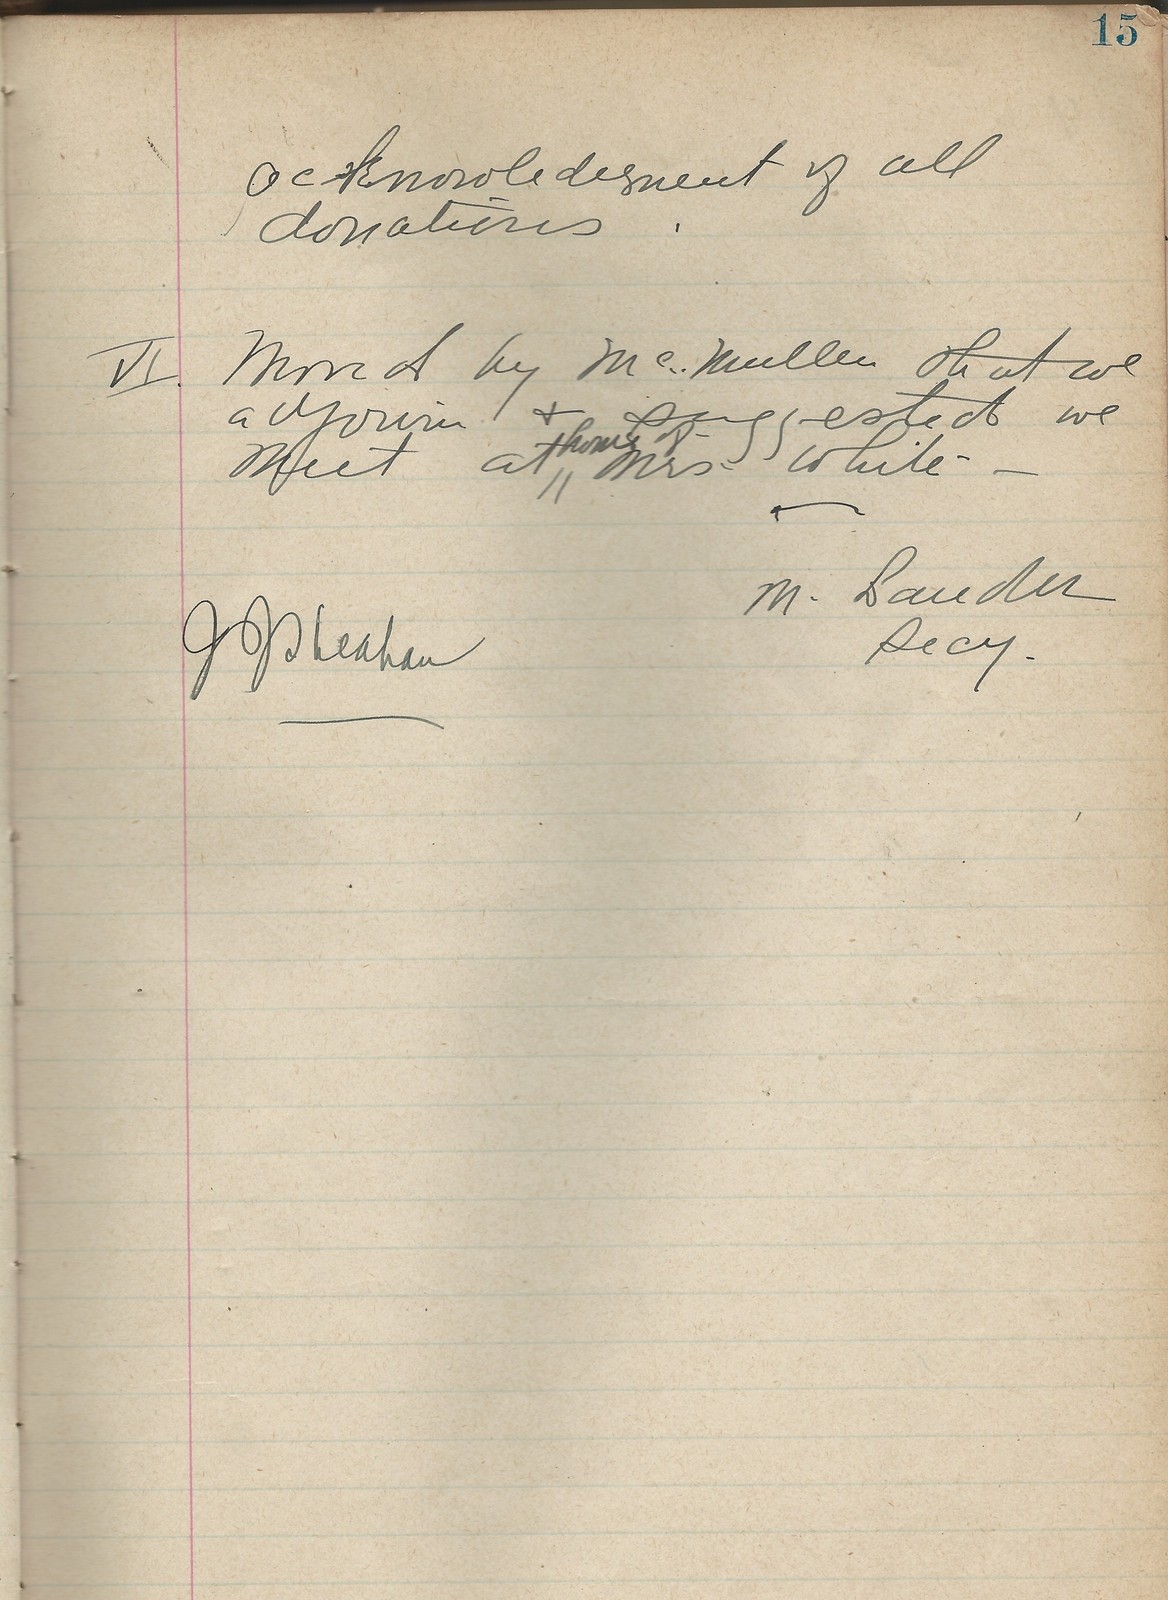 15
acknowledgment of all
donations.
VI. Moved by Mc. Mullen that we
adjourn & suggested we
meet at home of Mrs. White -
M. Sauder
Secy.
J J Sheahan